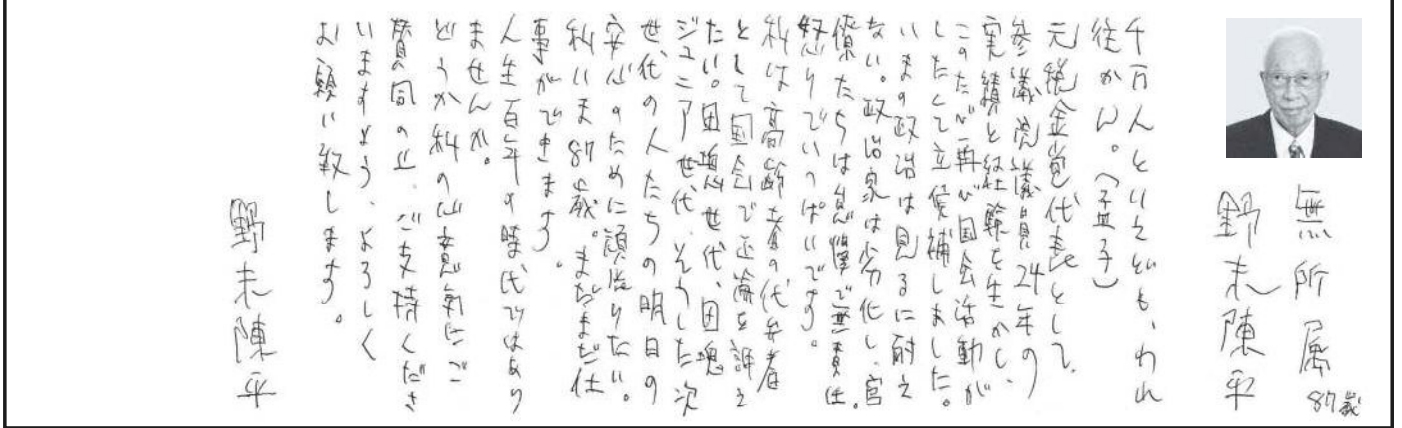 無所属
87歳
野末陳平
千万人といえども、われ
往かん。（孟子）
元税金党代表として、
参議院議員24年の
実績と経験を生かし、
このたび再び国会活動が
したくて立候補しました。
いまの政治は見るに耐え
ない。政治家は劣化し、官
僚たちは怠惰で無責任。
怒りでいっぱいです。
私は高齢者の代弁者
として国会で正論を訴え
たい。団塊世代、団塊
ジュニア世代、そうした次
世代の人たちの明日の
安心のために頑張りたい。
私いま87歳。まだまだ仕
事ができます。
人生百年の時代ではあり
ませんか。
どうか私の心意気にご
賛同の上、ご支持くださ
いますよう、よろしく
お願い致します。
野末陳平